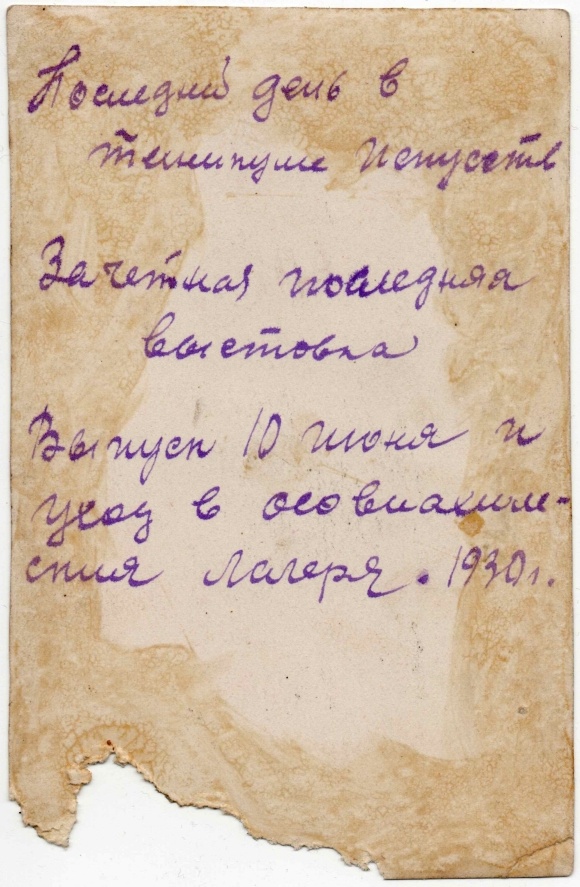 Последний день в
техникуме Искусств
Зачетная последняя
выставка
Выпуск 10 июня и
уход в осовиахим-
ския лагеря. 1930г.